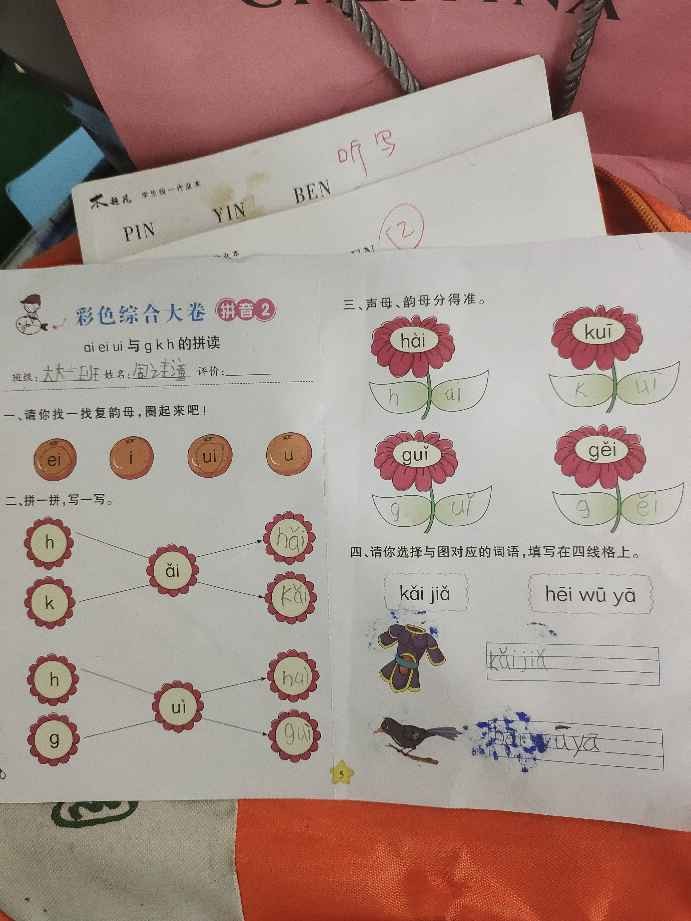 听写
木越礼 学生统一作业本
PIN YIN BEN
2
彩色综合大卷 拼音2
ai ei ui 与 g k h 的拼读
班级: 大大一班 姓名: 评价:
一、请你找一找复韵母,圈起来吧!
ei i ui u
二、拼一拼,写一写。
h
ǎi
hǎi
k
kǎi
h
uì
huì
g
guì
三、声母、韵母分得准。
hài
h ài
kuī
k uī
guǐ
g uǐ
gěi
g ěi
四、请你选择与图对应的词语,填写在四线格上。
kǎi jiǎ
hēi wū yā
kǎi jiǎ
hēi wū yā
5